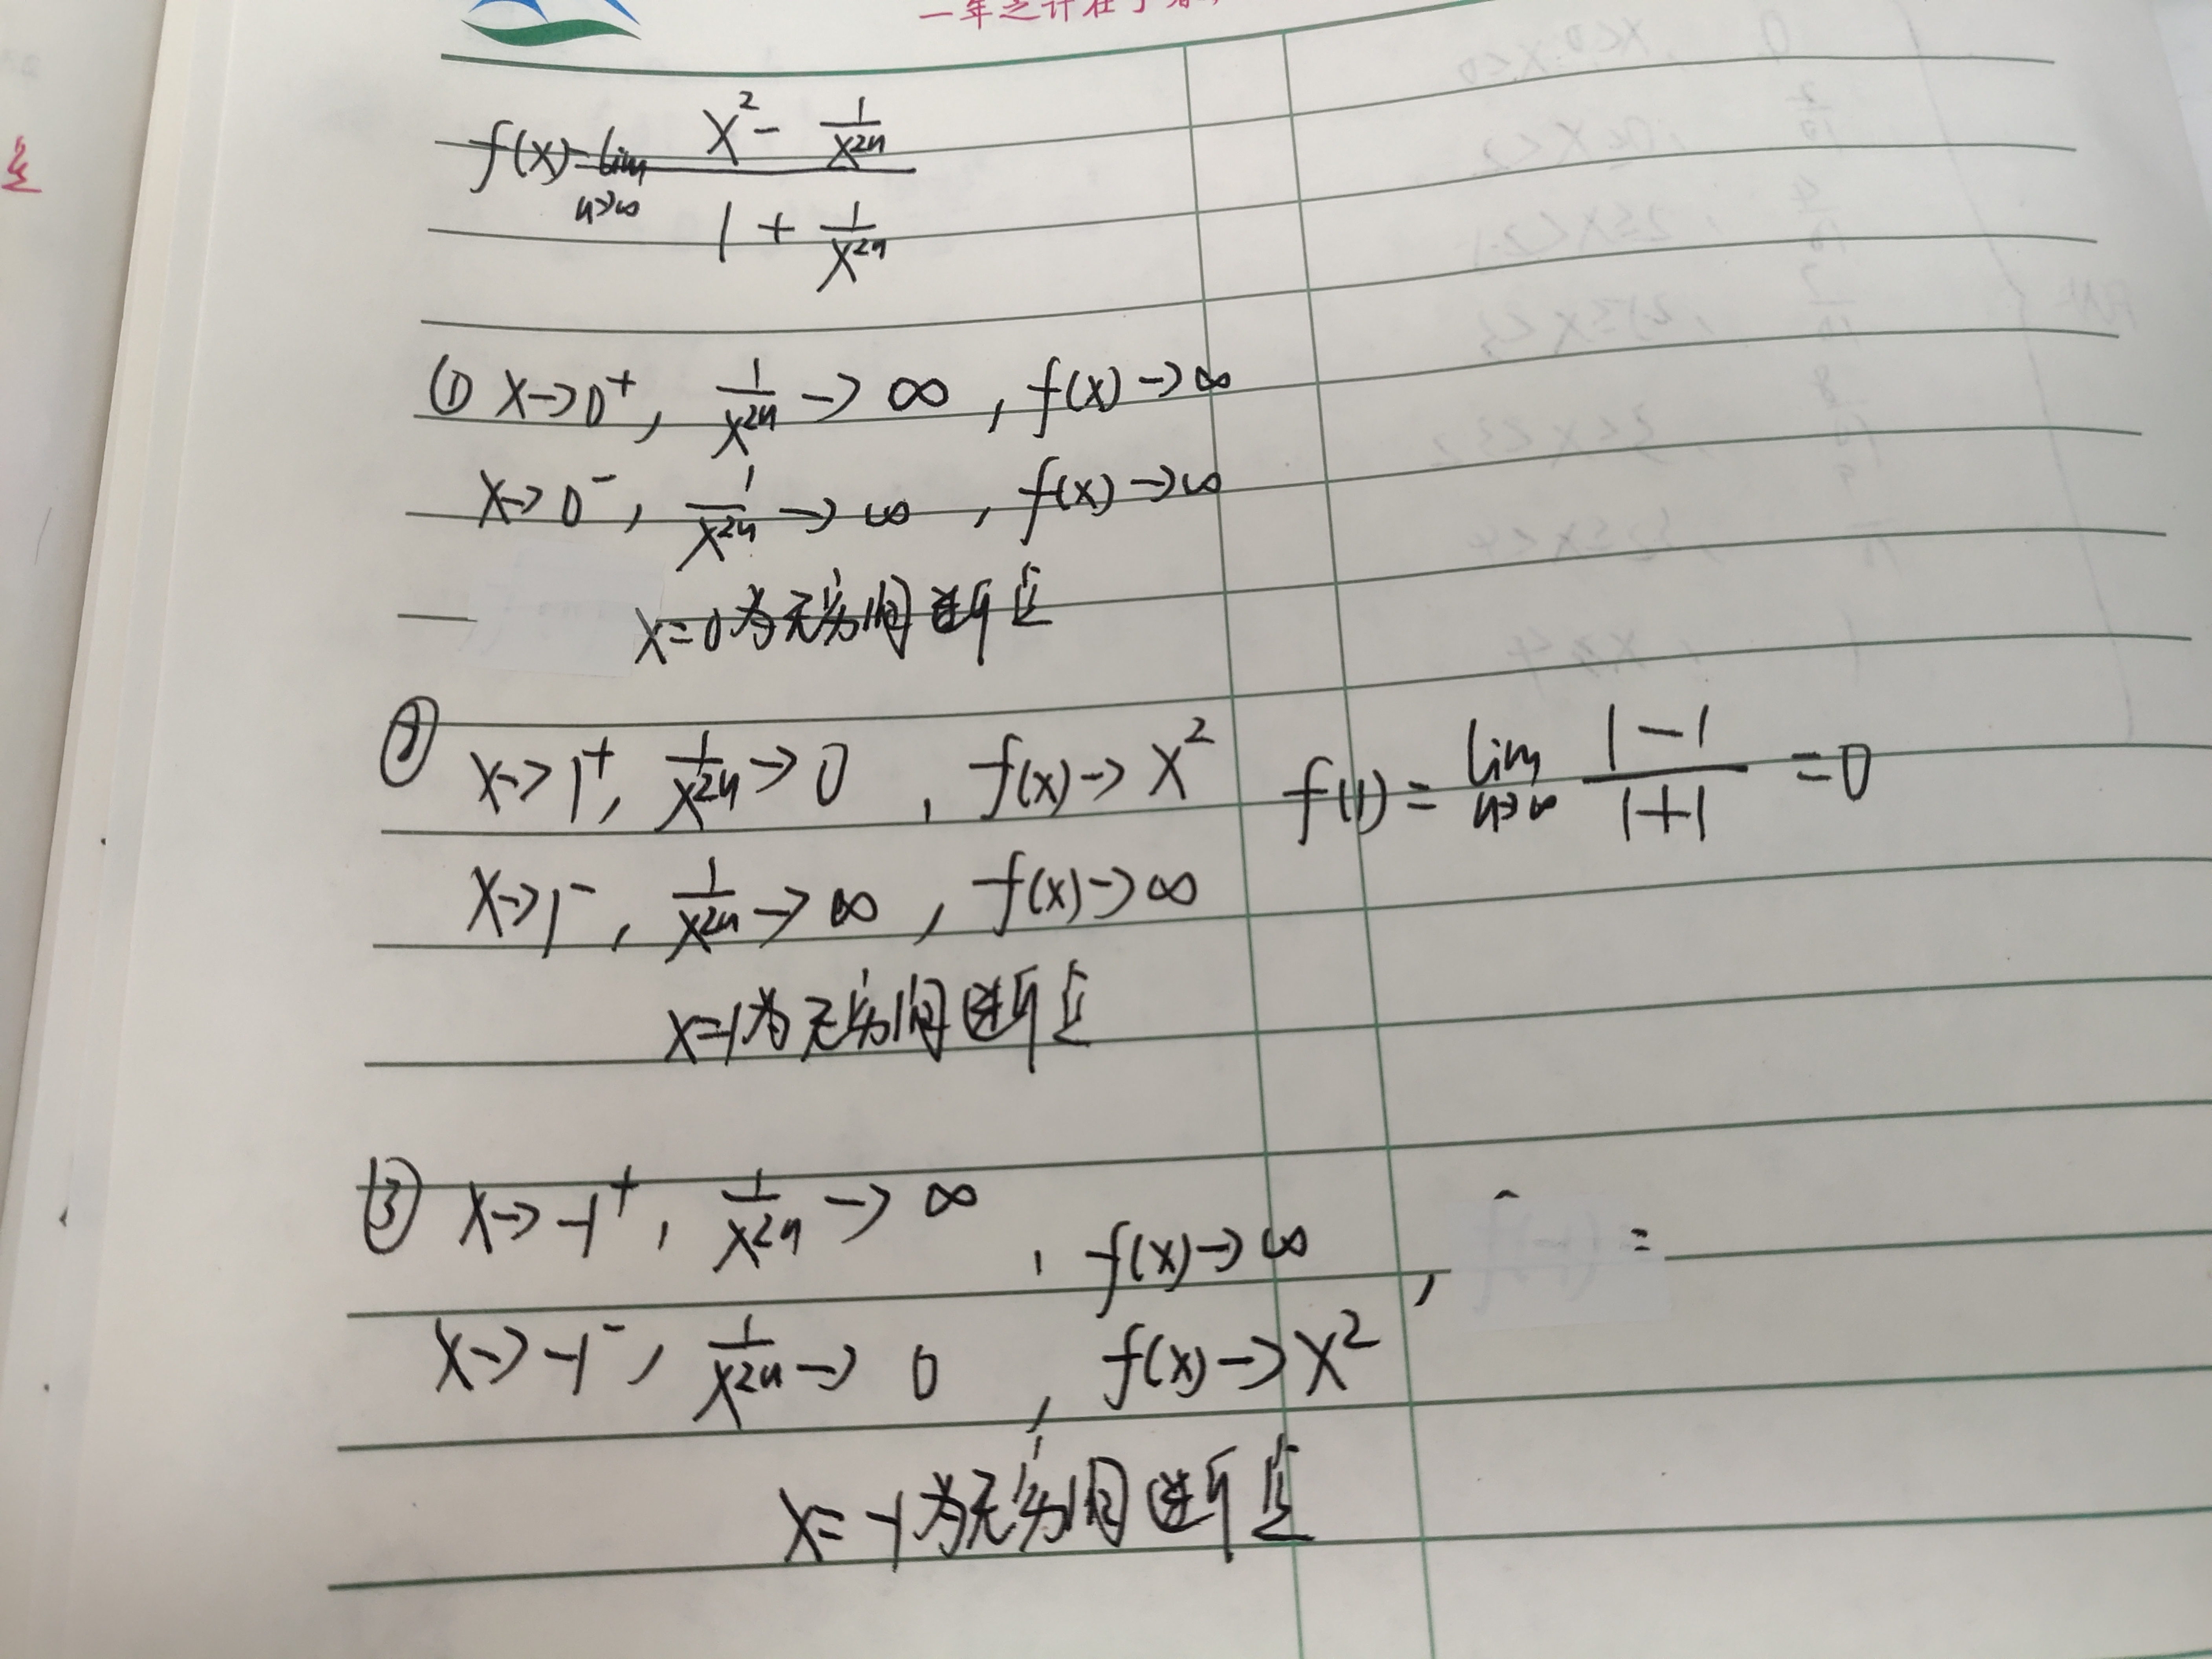 一年之计在于春,
f(x)=lim n→∞ (x² - 1/x²ⁿ) / (1 + 1/x²ⁿ)
① x→0⁺, 1/x²ⁿ → ∞, f(x)→∞
x→0⁻, 1/x²ⁿ → ∞, f(x)→∞
x=0为无穷间断点
② x→1⁺, 1/x²ⁿ → 0, f(x)→x² f(1)= lim n→∞ (1-1)/(1+1) =0
x→1⁻, 1/x²ⁿ → ∞, f(x)→∞
x=1为无穷间断点
③ x→-1⁺, 1/x²ⁿ → ∞, f(x)→∞, =
x→-1⁻, 1/x²ⁿ → 0, f(x)→x²
x=-1为无穷间断点